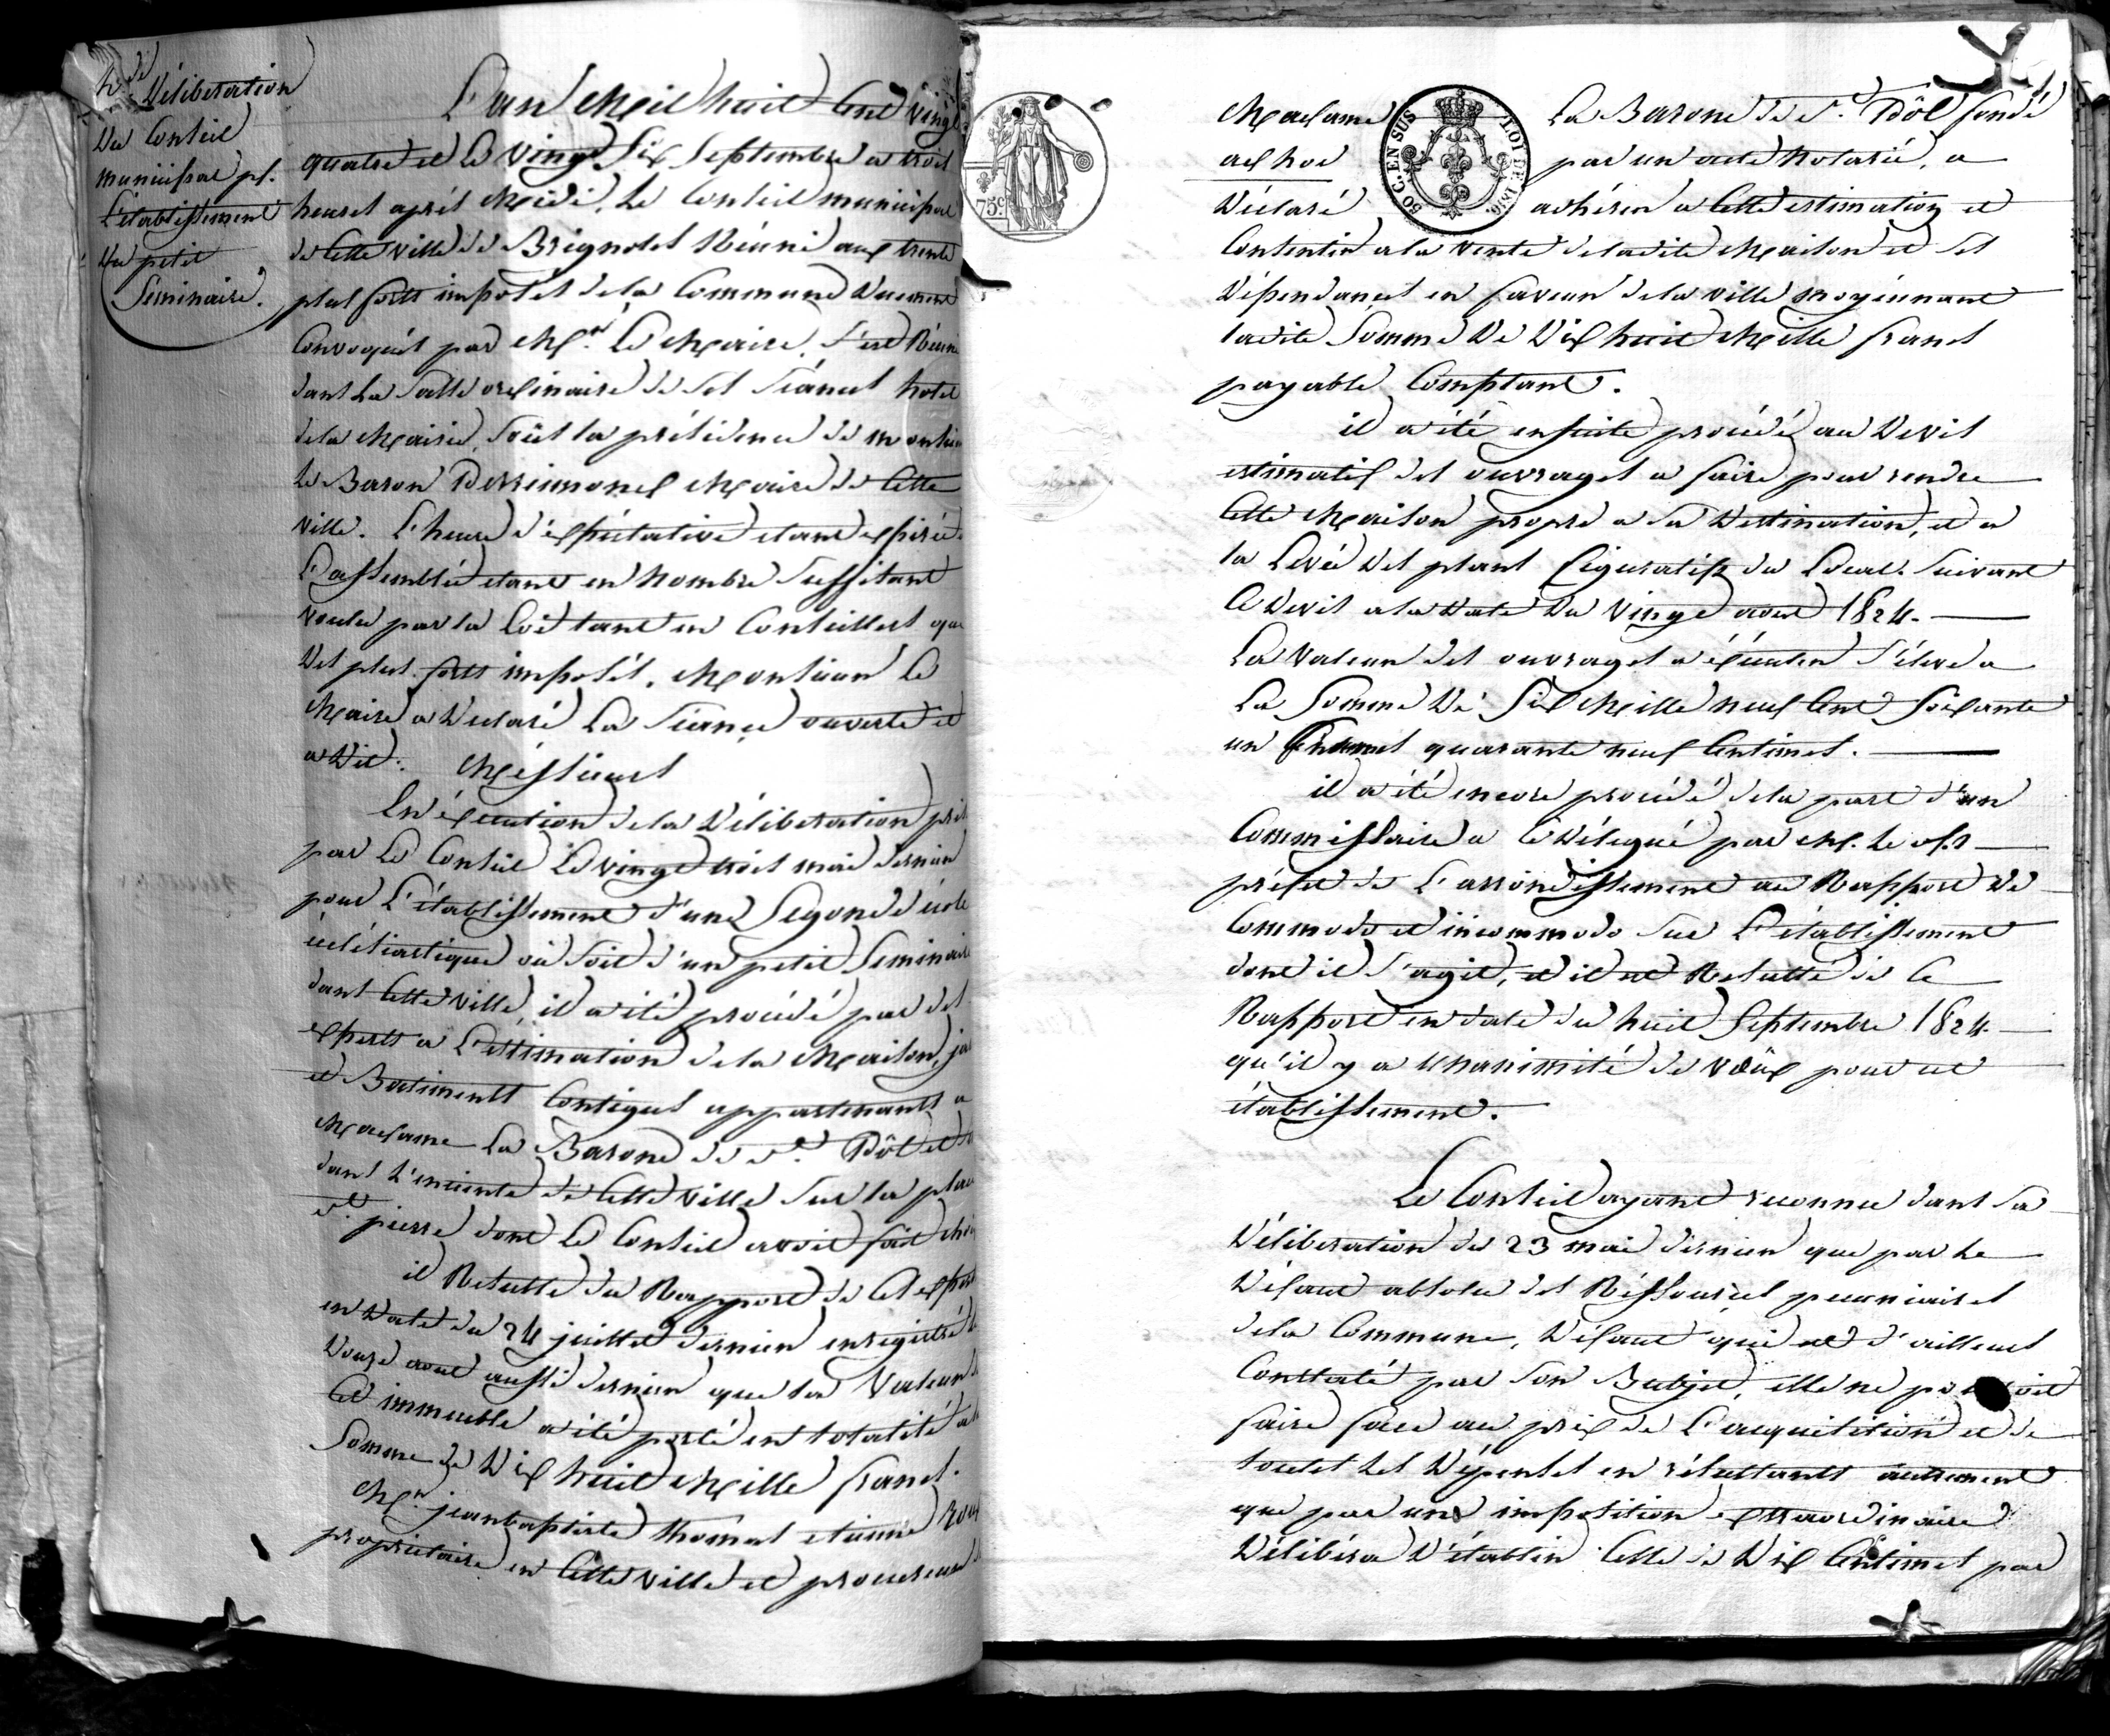 Délibération
Du Conseil
municipal pr.
L'établissement
Du petit
Séminaire.
L'an Mil huit Cent vingt
quatre et le vingt Six Septembre a trois
heures après Midi, le Conseil municipal
de Cette ville de Brignoles Réuni aux trente
plus forts imposés de la Commune Duement
Convoqués par Mr. Le Maire, s'est Réuni
dans La Salle ordinaire de ses Séances hotel
de la Mairie, sous la présidence de monsieur
Le Baron Desssimonef Maire de Cette
ville. L'heure d'éxpectative etant expirée
L'assemblée etant en Nombre Suffisant
voulu par la Loi tant en Conseillers que
Des plus forts imposés. Monsieur Le
Maire a Declaré La Séance ouverte et
a Dit: Messieurs
En éxécution de la Délibération prise
par Le Conseil Le vingt trois mai dernier
pour L'établissement d'une Segonde école
éclésiastique ou soit d'un petit Seminaire
dans Cette ville, il a été procédé par des
experts a L'estimation de la Maison, ja
et Batiments Contigus appartenants a
Madame La Barone de St. Pôl et
dans l'enceinte de Cette ville Sur la place
St. pierre dont Le Conseil avoit fait choix
il Résulte du Rapport de Ces experts
en Date du 24 juillet dernier enregistré le
Douze aout aussi dernier que la Valeur de
Cet immeuble a été porté en totalité a la
Somme de Dix huit Mille francs.
Mr. jean baptiste thomas etienne Roux
propriétaire en Cette ville et procureur de
75 c.
50 C. EN SUS
LOI DE 1816
Madame La Barone de St. Pôl fondé
ad hoc par un acte Notarié, a
Déclaré adhérer a Cette estimation et
Consentir a la vente de ladite Maison et ses
Dépendances en faveur de la ville moyénnant
ladite Somme De Dix huit Mille francs
payable Comptant.
il a été ensuite procédé au Devis
estimatif des ouvrages a faire pour rendre
Cette Maison propre a sa Destination, et a
la Levée Des plans figuratifs du Local. Suivant
Ce Devis a la Date Du vingt aout 1824.
La Valeur des ouvrages a éxécuter s'éleve a
La Somme De Six Mille neuf Cent Soixante
un francs quarante neuf Centimes.
il a été encore procédé de la part d'un
Commissaire a Ce Délégué par M. Le Ss
préfet de L'arrondissement au Rapport De
Commodo et incommodo Sur L'établissement
dont il s'agit, et il est Résulté de Ce
Rapport en date du huit Septembre 1824
qu'il y a Unanimité de vœux pour cet
établissement.
Le Conseil ayant reconnu dans Sa
Délibération du 23 mai dernier que par Le
Défaut absolu des Réssources pecuniaires
de la Commune, Défaut qui est d'ailleurs
Constaté par Son Budjet, elle ne pouvoit
faire face au prix de L'acquisition et de
toutes Les Dépenses en résultants autrement
que par une imposition extraordinaire
Délibéra D'établir Celle de Dix Centimes par